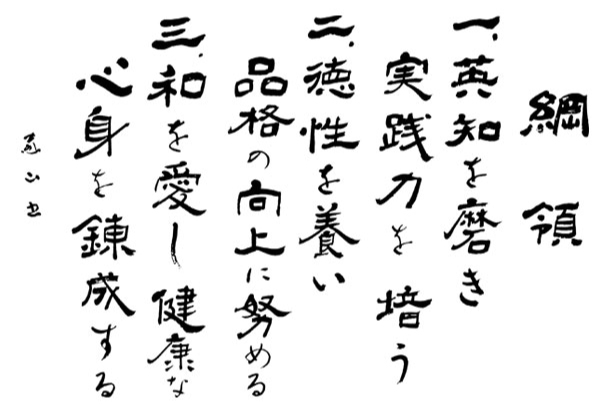 綱領
一、英知を磨き
実践力を培う
二、徳性を養い
品格の向上に努める
三、和を愛し健康な
心身を錬成する